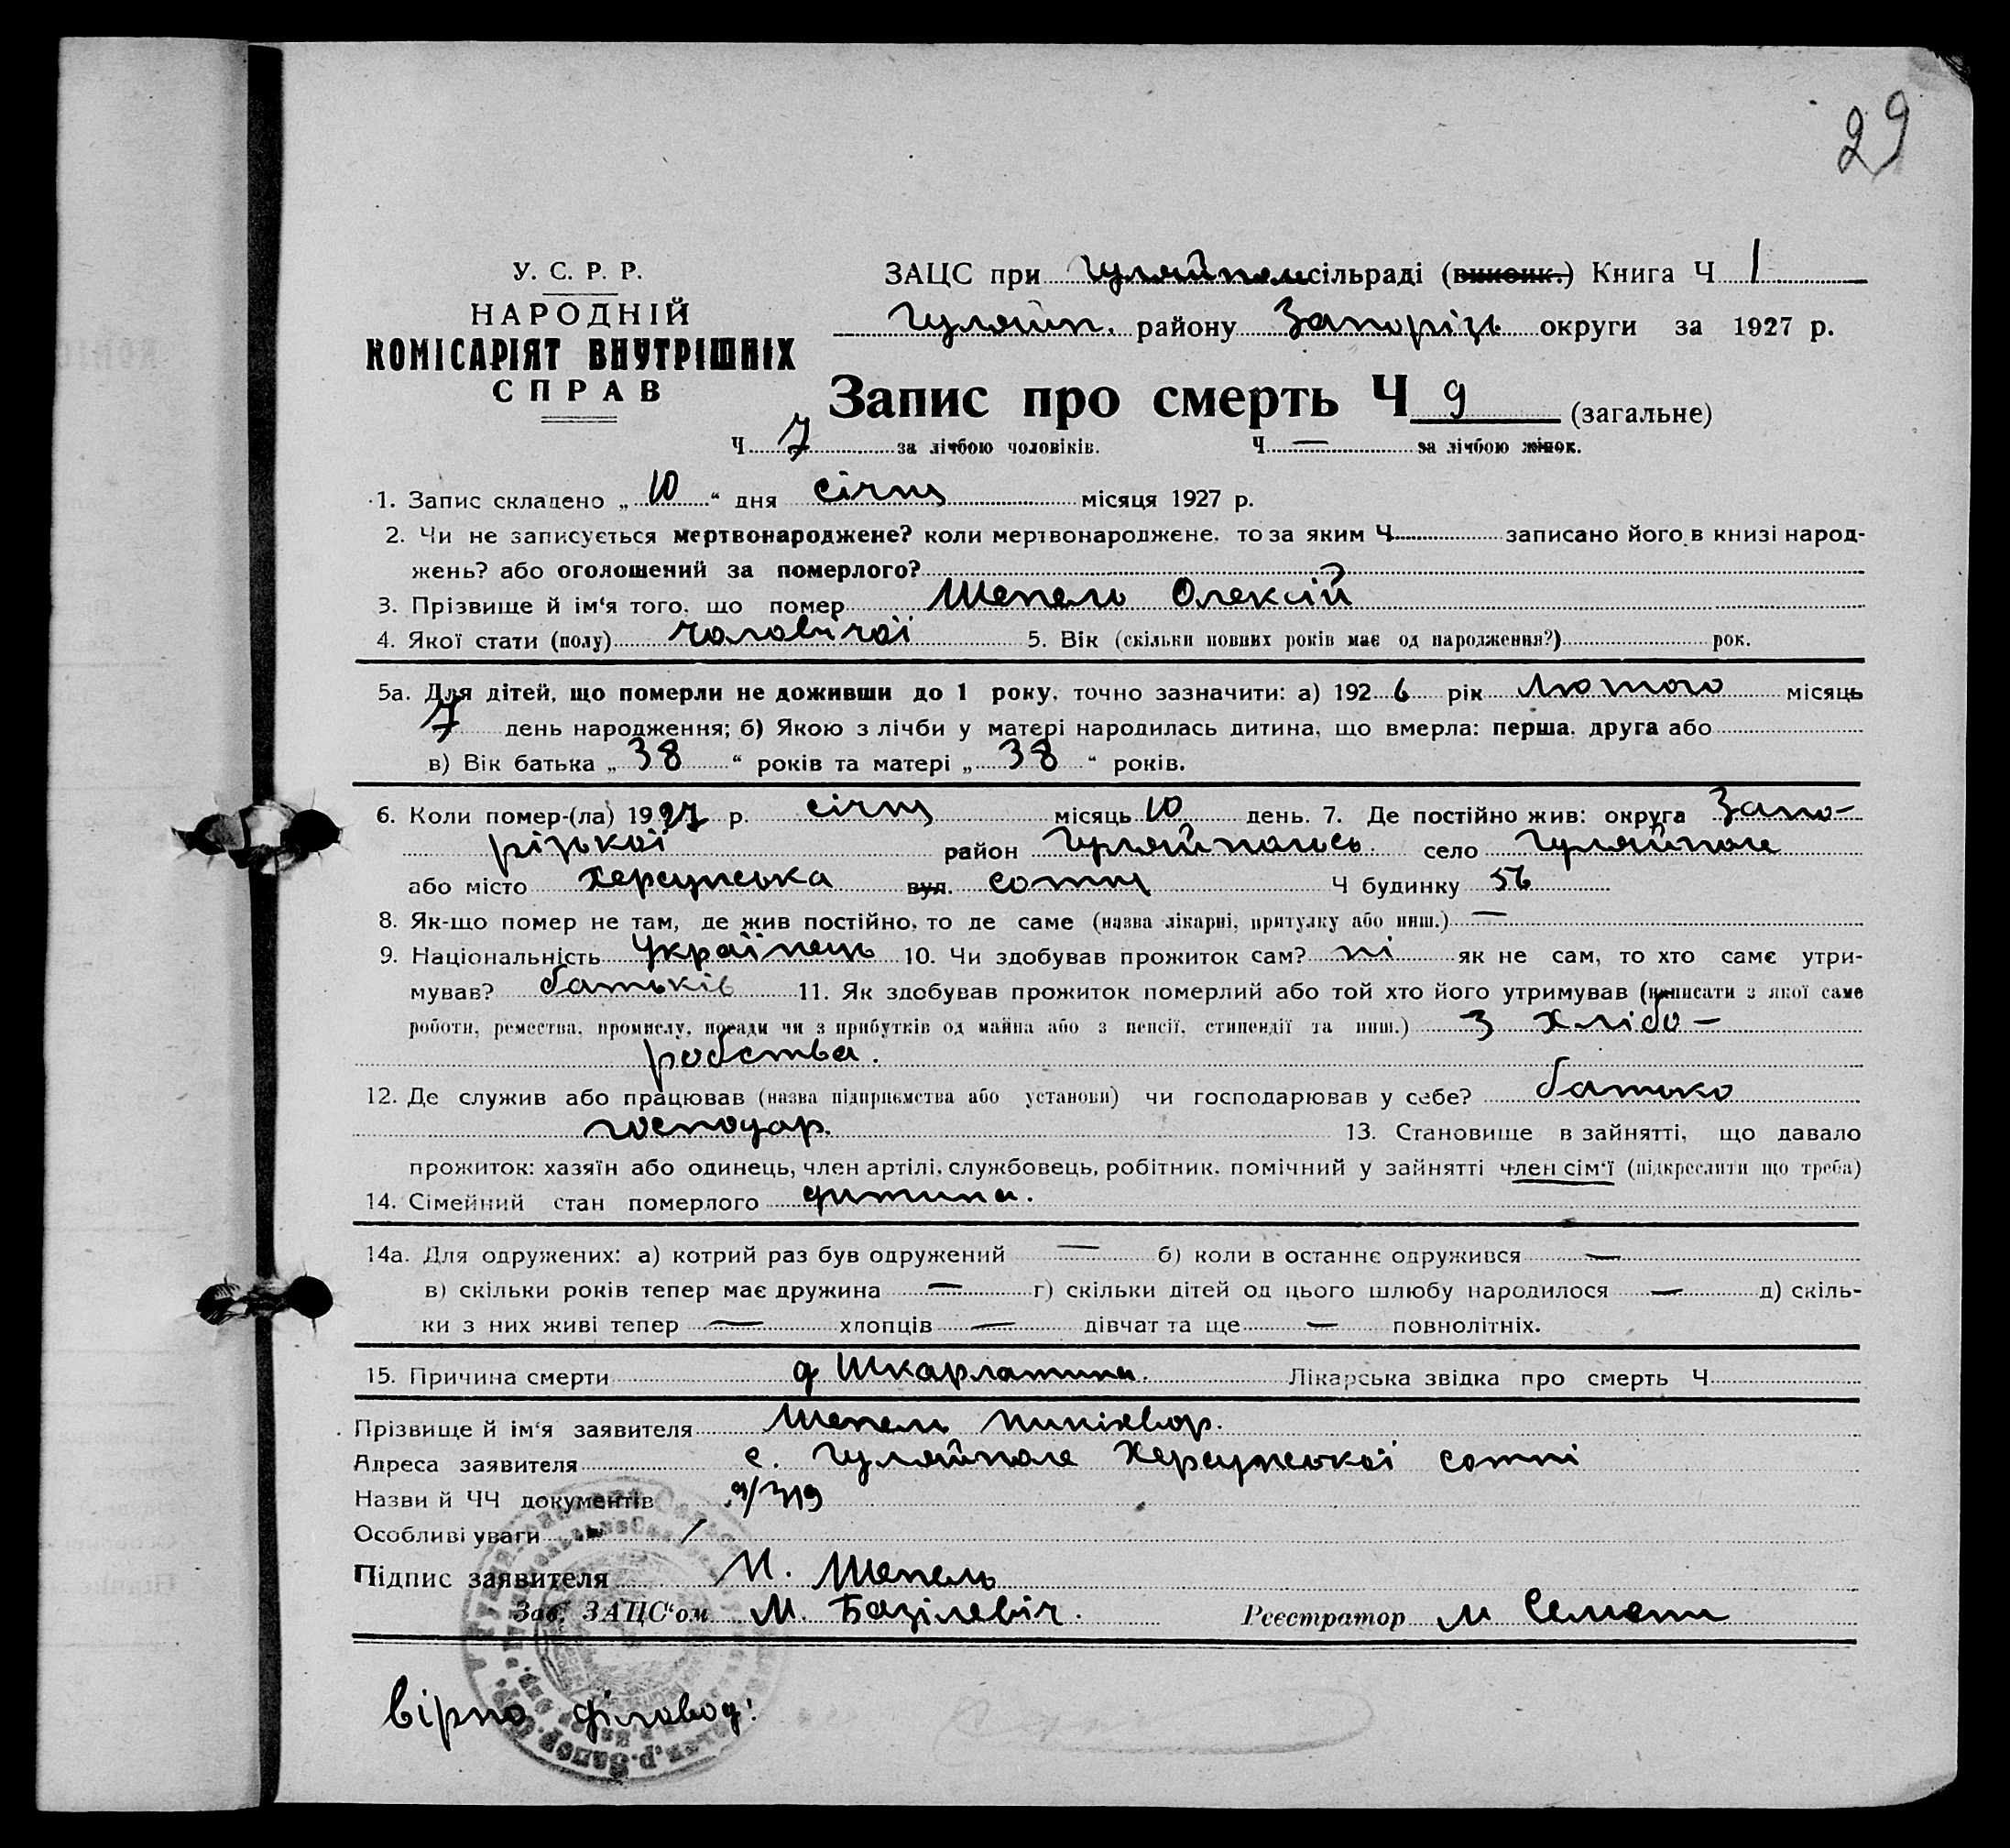 29
У. С. Р. Р.
НАРОДНІЙ
КОМІСАРІЯТ ВНУТРІШНІХ
СПРАВ
ЗАЦС при Гуляйпол сільраді (виконк.) Книга Ч 1
Гуляйп. району Запорізь округи за 1927 р.
Запис про смерть Ч 9 (загальне)
Ч 7 за лічбою чоловіків. Ч — за лічбою жінок.
1. Запис складено „ 10 “ дня січня місяця 1927 р.
2. Чи не записується мертвонароджене? коли мертвонароджене, то за яким Ч записано його в книзі народ-
жень? або оголошений за померлого?
3. Прізвище й ім'я того, що помер Шепель Олексій
4. Якої стати (полу) чоловічої 5. Вік (скільки повних років має од народження?) рок.
5а. Для дітей, що померли не доживши до 1 року, точно зазначити: а) 192 6 рік Лютого місяць
7 день народження; б) Якою з лічби у матері народилась дитина, що вмерла: перша, друга або
в) Вік батька „ 38 “ років та матері „ 38 “ років.
6. Коли помер-(ла) 1927 р. січня місяць 10 день. 7. Де постійно жив: округа Запо-
різької район Гуляйпольсь. село Гуляйполе
або місто Херсунська вул. сотня Ч будинку 56
8. Як-що помер не там, де жив постійно, то де саме (назва лікарні, притулку або инш.) —
9. Національність Українець 10. Чи здобував прожиток сам? ні як не сам, то хто саме утри-
мував? батьків 11. Як здобував прожиток померлий або той хто його утримував (написати з якої саме
роботи, ремества, промислу, посади чи з прибутків од майна або з пенсії, стипендії та инш.) З хлібо-
робства.
12. Де служив або працював (назва підприємства або установи) чи господарював у себе? батько
господар. 13. Становище в зайнятті, що давало
прожиток: хазяїн або одинець, член артілі, службовець, робітник, помічний у зайнятті член сім'ї (підкреслити що треба)
14. Сімейний стан померлого дитина.
14а. Для одружених: а) котрий раз був одружений — б) коли в останнє одружився —
в) скільки років тепер має дружина — г) скільки дітей од цього шлюбу народилося — д) скіль-
ки з них живі тепер — хлопців — дівчат та ще — повнолітніх.
15. Причина смерти Шкарлатина. Лікарська звідка про смерть Ч
Прізвище й ім'я заявителя Шепель Никіхвор.
Адреса заявителя с. Гуляйполе Херсунської сотні
Назви й ЧЧ документів
Особливі уваги
Підпис заявителя М. Шепель
Зав. ЗАЦС'ом М. Базілевіч. Реєстратор М
вірно діловод: